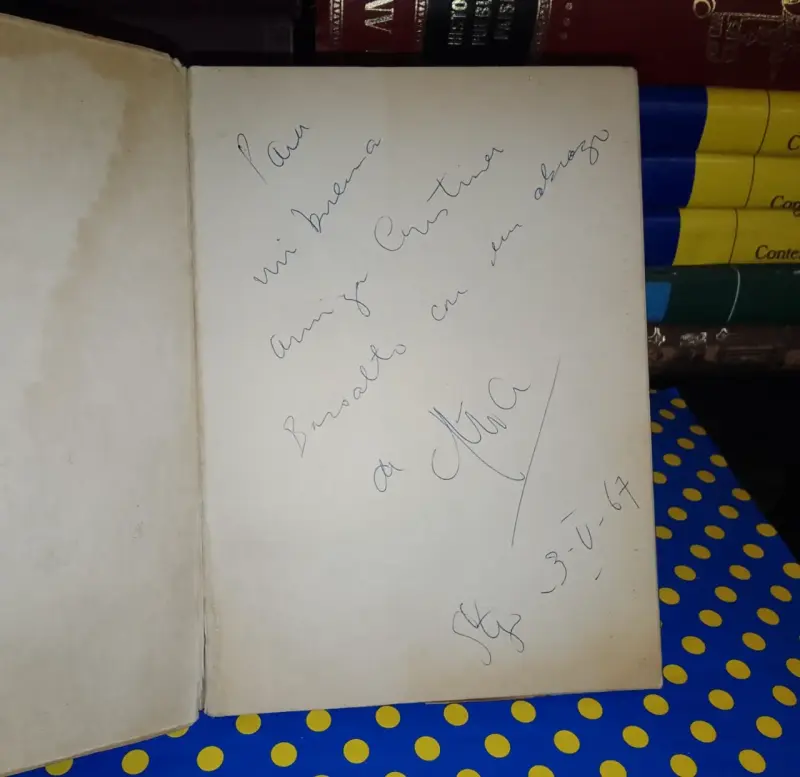 Para
mi buena
amiga Cristina
Basoalto con un abrazo
de
Stgo -3-V-67
Conte